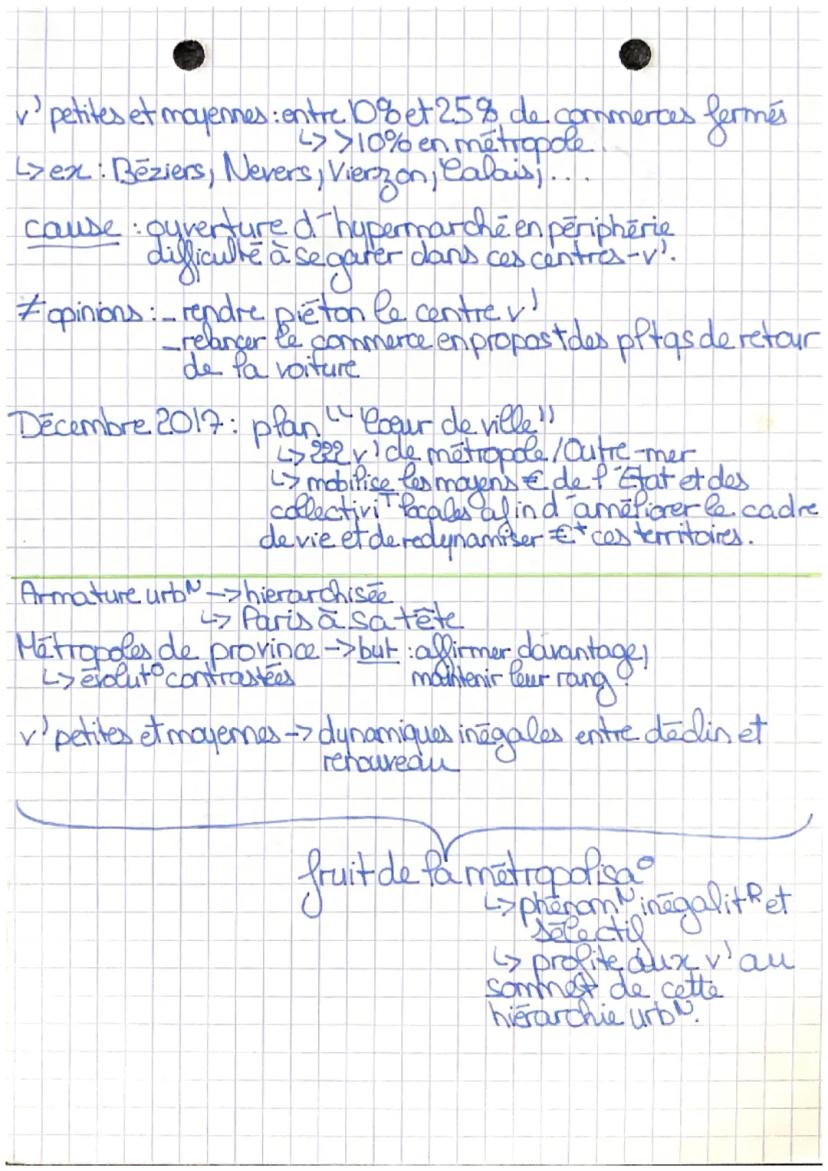 v' petites et moyennes : entre 10% et 25% de commerces fermés
↳ >10% en métropole.
↳ ex : Béziers, Nevers, Vierzon, Calais, ...
cause : ouverture d'hypermarché en périphérie
difficulté à se garer dans ces centres-v'.
≠ opinions : - rendre piéton le centre v'
- relancer le commerce en propost des pltqs de retour
de la voiture
Décembre 2017 : plan "Coeur de ville"
↳ 222 v' de métropole/Outre-mer
↳ mobilise les moyens € de l'État et des
collectiviT locales afin d'améliorer le cadre
de vie et de redynamiser €+ ces territoires.
Armature urbN -> hierarchisée
↳ Paris à sa tête
Métropoles de province -> but : affirmer davantage,
↳ évoluto contrastées maintenir leur rang
v' petites et moyennes -> dynamiques inégales entre déclin et
renouveau
fruit de la métropolisao
↳ phénomN inégalitR et
sélectif
↳ profite aux v' au
sommet de cette
hiérarchie urbN.